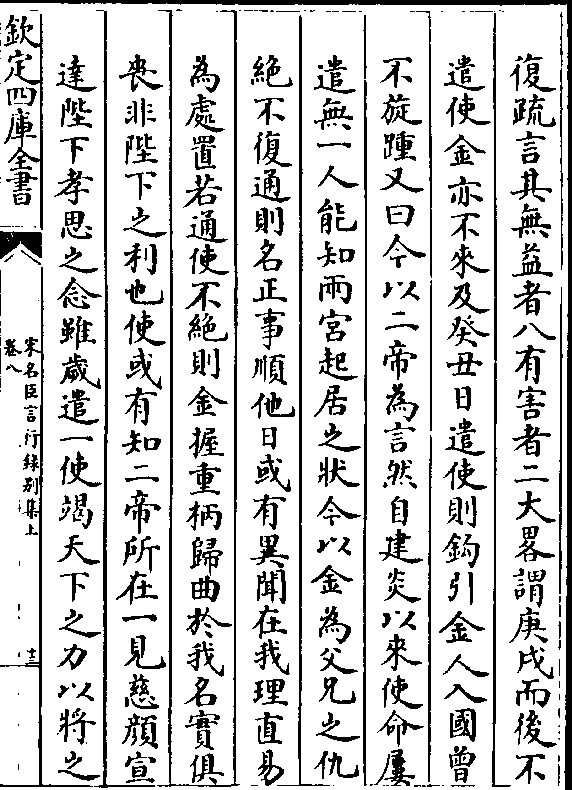 復疏言其無益者八有害者二大畧謂庚戌而後不
遣使金亦不來及癸丑日遣使則鈎引金人入國曾
不旋踵又曰今以二帝為言然自建炎以來使命屢
遣無一人能知兩宮起居之狀今以金為父兄之仇
絶不復通則名正事順他日或有異聞在我理直易
為處置若通使不絶則金握重柄歸曲於我名實俱
喪非陛下之利也使或有知二帝所在一見慈顔宣
達陛下孝思之念雖歲遣一使竭天下之力以將之
欽定四庫全書
宋名臣言行録别集上
卷八
十三